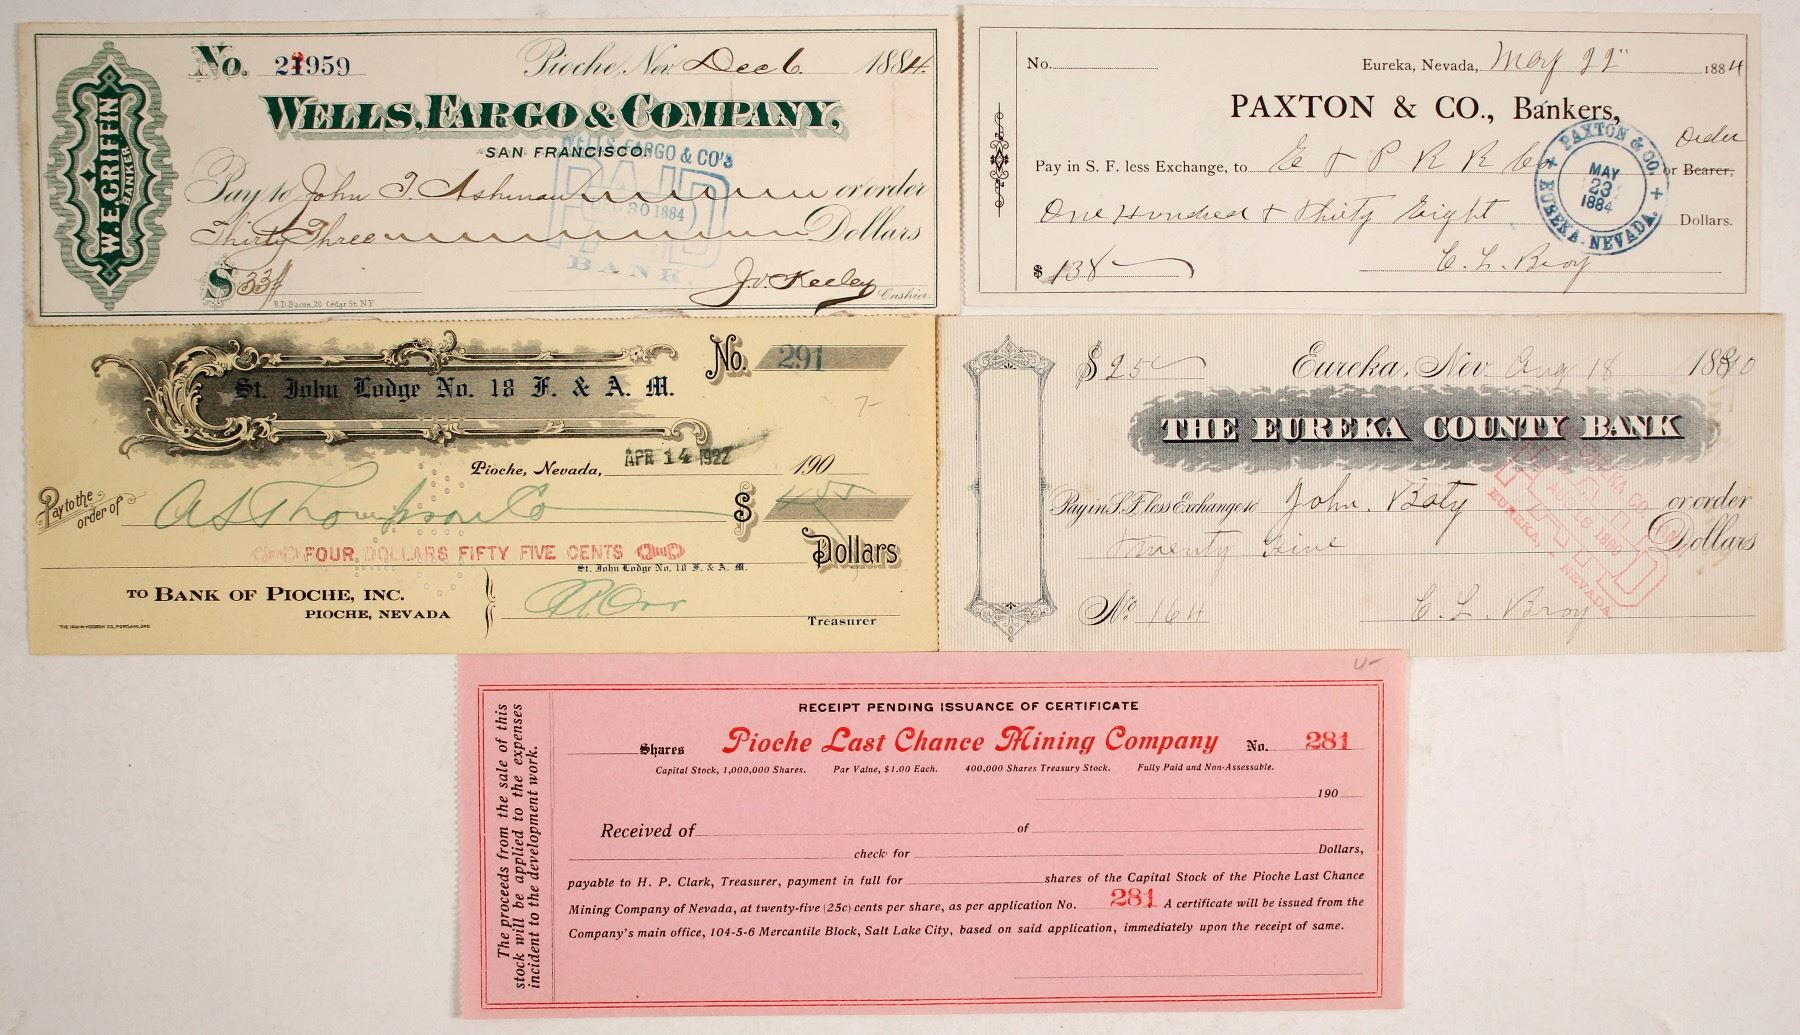 No. 21959 Pioche, Nev. Dec 6. 1884.
WELLS, FARGO & COMPANY,
SAN FRANCISCO.
W.E. GRIFFIN
BANKER
WELLS FARGO & CO'S
PAID
30 1884
BANK
Pay to John T. Ashman or order
Thirty Three Dollars
$ 33
Cashier.
R.D. Bacon, 20 Cedar St. N.Y.
No. Eureka, Nevada, May 22" 1884
PAXTON & CO., Bankers,
Pay in S. F. less Exchange, to E & P R R Co or Bearer, Order
One Hundred & Thirty Eight Dollars.
$ 138
C. L. Broy
PAXTON & CO.
MAY
23
1884
EUREKA, NEVADA.
No. 291
St. John Lodge No. 18 F. & A. M.
7-
Pioche, Nevada, APR 14 1922 190
Pay to the order of A S Thompson Co $ 4.55
FOUR DOLLARS FIFTY FIVE CENTS Dollars
St. John Lodge No. 18 F. & A. M.
TO BANK OF PIOCHE, INC.
PIOCHE, NEVADA
Treasurer
THE IRWIN-HODSON CO. PORTLAND, ORE
$ 25 Eureka, Nev. Aug 18 1890
THE EUREKA COUNTY BANK
Pay in S.F. less Exchange to John. Boty or order
twenty five Dollars
No. 164 C. L. Broy
EUREKA CO. BANK
PAID
AUG 18 1890
EUREKA, NEVADA
U-
RECEIPT PENDING ISSUANCE OF CERTIFICATE
Shares Pioche Last Chance Mining Company No. 281
Capital Stock, 1,000,000 Shares. Par Value, $1.00 Each. 400,000 Shares Treasury Stock. Fully Paid and Non-Assessable.
190
Received of of
check for Dollars,
payable to H. P. Clark, Treasurer, payment in full for shares of the Capital Stock of the Pioche Last Chance
Mining Company of Nevada, at twenty-five (25c) cents per share, as per application No. 281 A certificate will be issued from the
Company's main office, 104-5-6 Mercantile Block, Salt Lake City, based on said application, immediately upon the receipt of same.
The proceeds from the sale of this
stock will be applied to the expenses
incident to the development work.